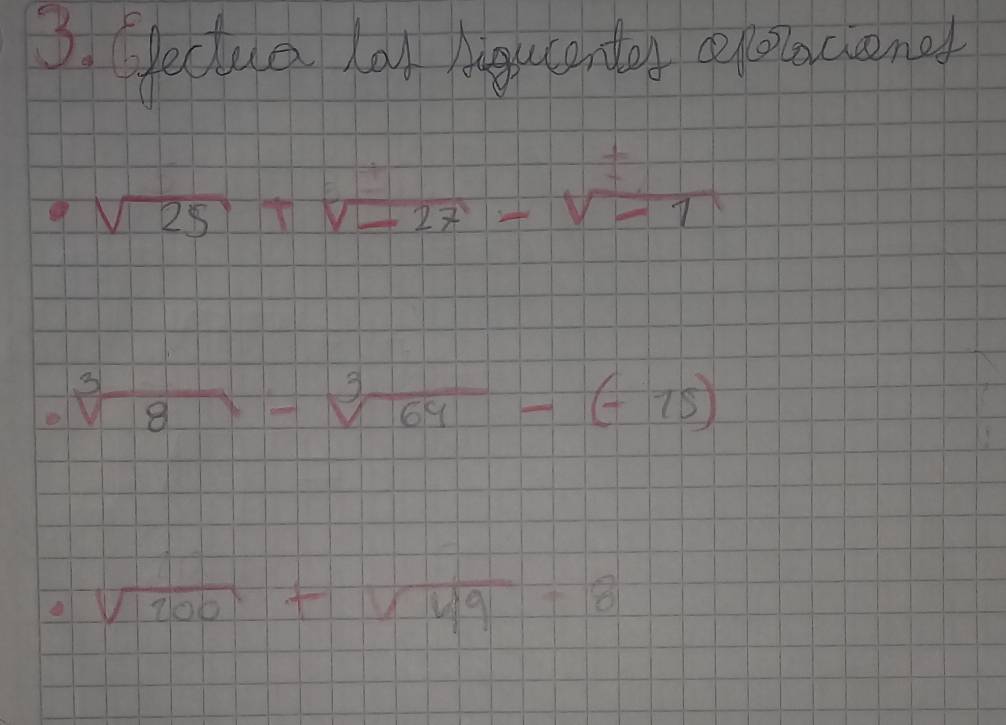 3. Efectua las siguientes operaciones
• √25 + √-27 - √-1
• ³√8 - ³√64 - (-15)
• √100 + √49 - 8